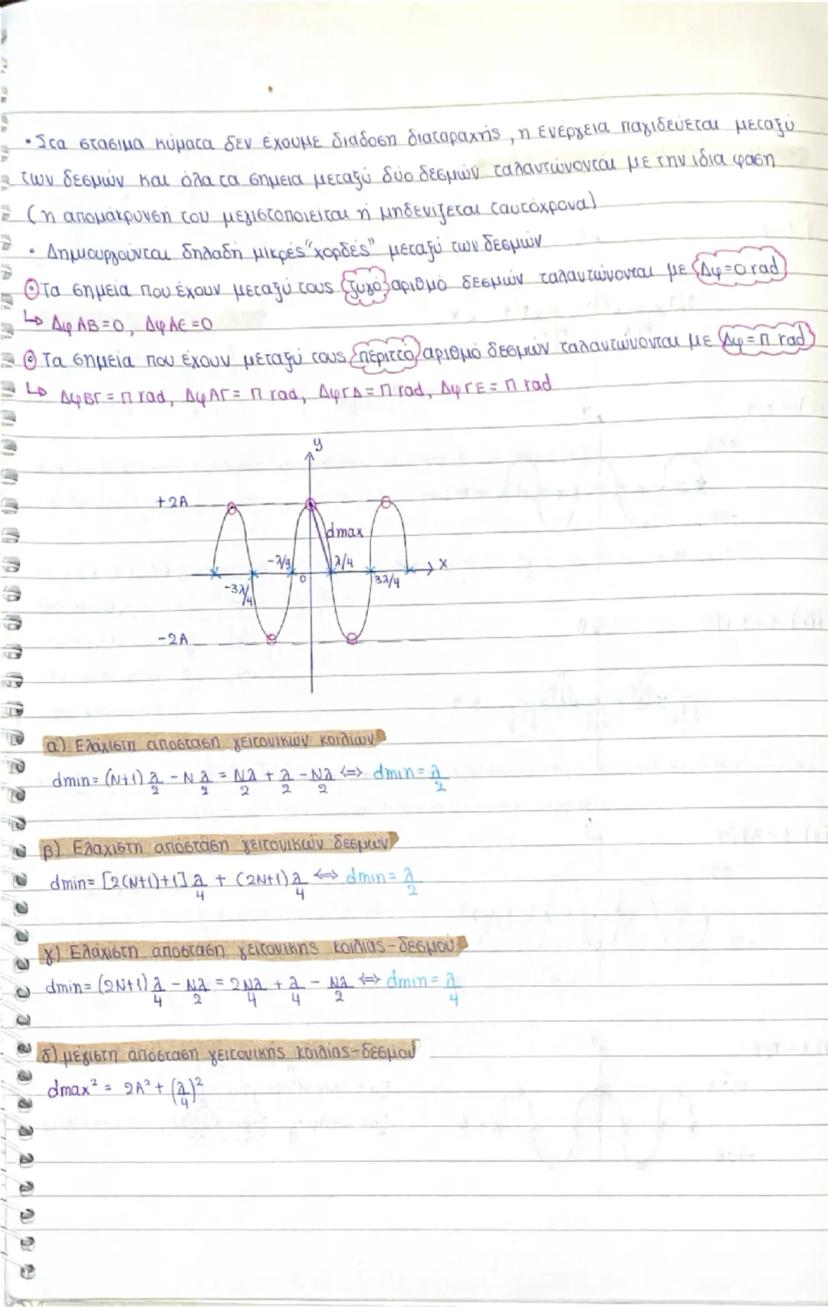 • Στα στάσιμα κύματα δεν έχουμε διάδοση διαταραχής, η ενέργεια παγιδεύεται μεταξύ
των δεσμών και όλα τα σημεία μεταξύ δύο δεσμών ταλαντώνονται με την ίδια φάση
(η απομάκρυνση του μεγιστοποιείται ή μηδενίζεται ταυτόχρονα)
• Δημιουργούνται δηλαδή μικρές "χορδές" μεταξύ των δεσμών
⊙ Τα σημεία που έχουν μεταξύ τους ζυγό αριθμό δεσμών ταλαντώνονται με Δφ=0 rad
↳ ΔφΑΒ=0, ΔφΑΕ=0
⊙ Τα σημεία που έχουν μεταξύ τους περιττό αριθμό δεσμών ταλαντώνονται με Δφ=π rad
↳ ΔφΒΓ=π rad, ΔφΑΓ=π rad, ΔφΓΔ=π rad, ΔφΓΕ=π rad
y
+2A
dmax
-λ/4 λ/4 x
-3λ/4 0 3λ/4
-2A
α) Ελάχιστη απόσταση γειτονικών κοιλιών
dmin= (N+1) λ/2 - N λ/2 = Nλ/2 + λ/2 - Nλ/2 <=> dmin= λ/2
β) Ελάχιστη απόσταση γειτονικών δεσμών
dmin= [2(N+1)+1] λ/4 + (2N+1) λ/4 <=> dmin= λ/2
γ) Ελάχιστη απόσταση γειτονικής κοιλίας-δεσμού
dmin= (2N+1) λ/4 - Nλ/2 = 2Nλ/4 + λ/4 - Nλ/2 <=> dmin= λ/4
δ) μέγιστη απόσταση γειτονικής κοιλίας-δεσμού
dmax² = 2A² + (λ/4)²